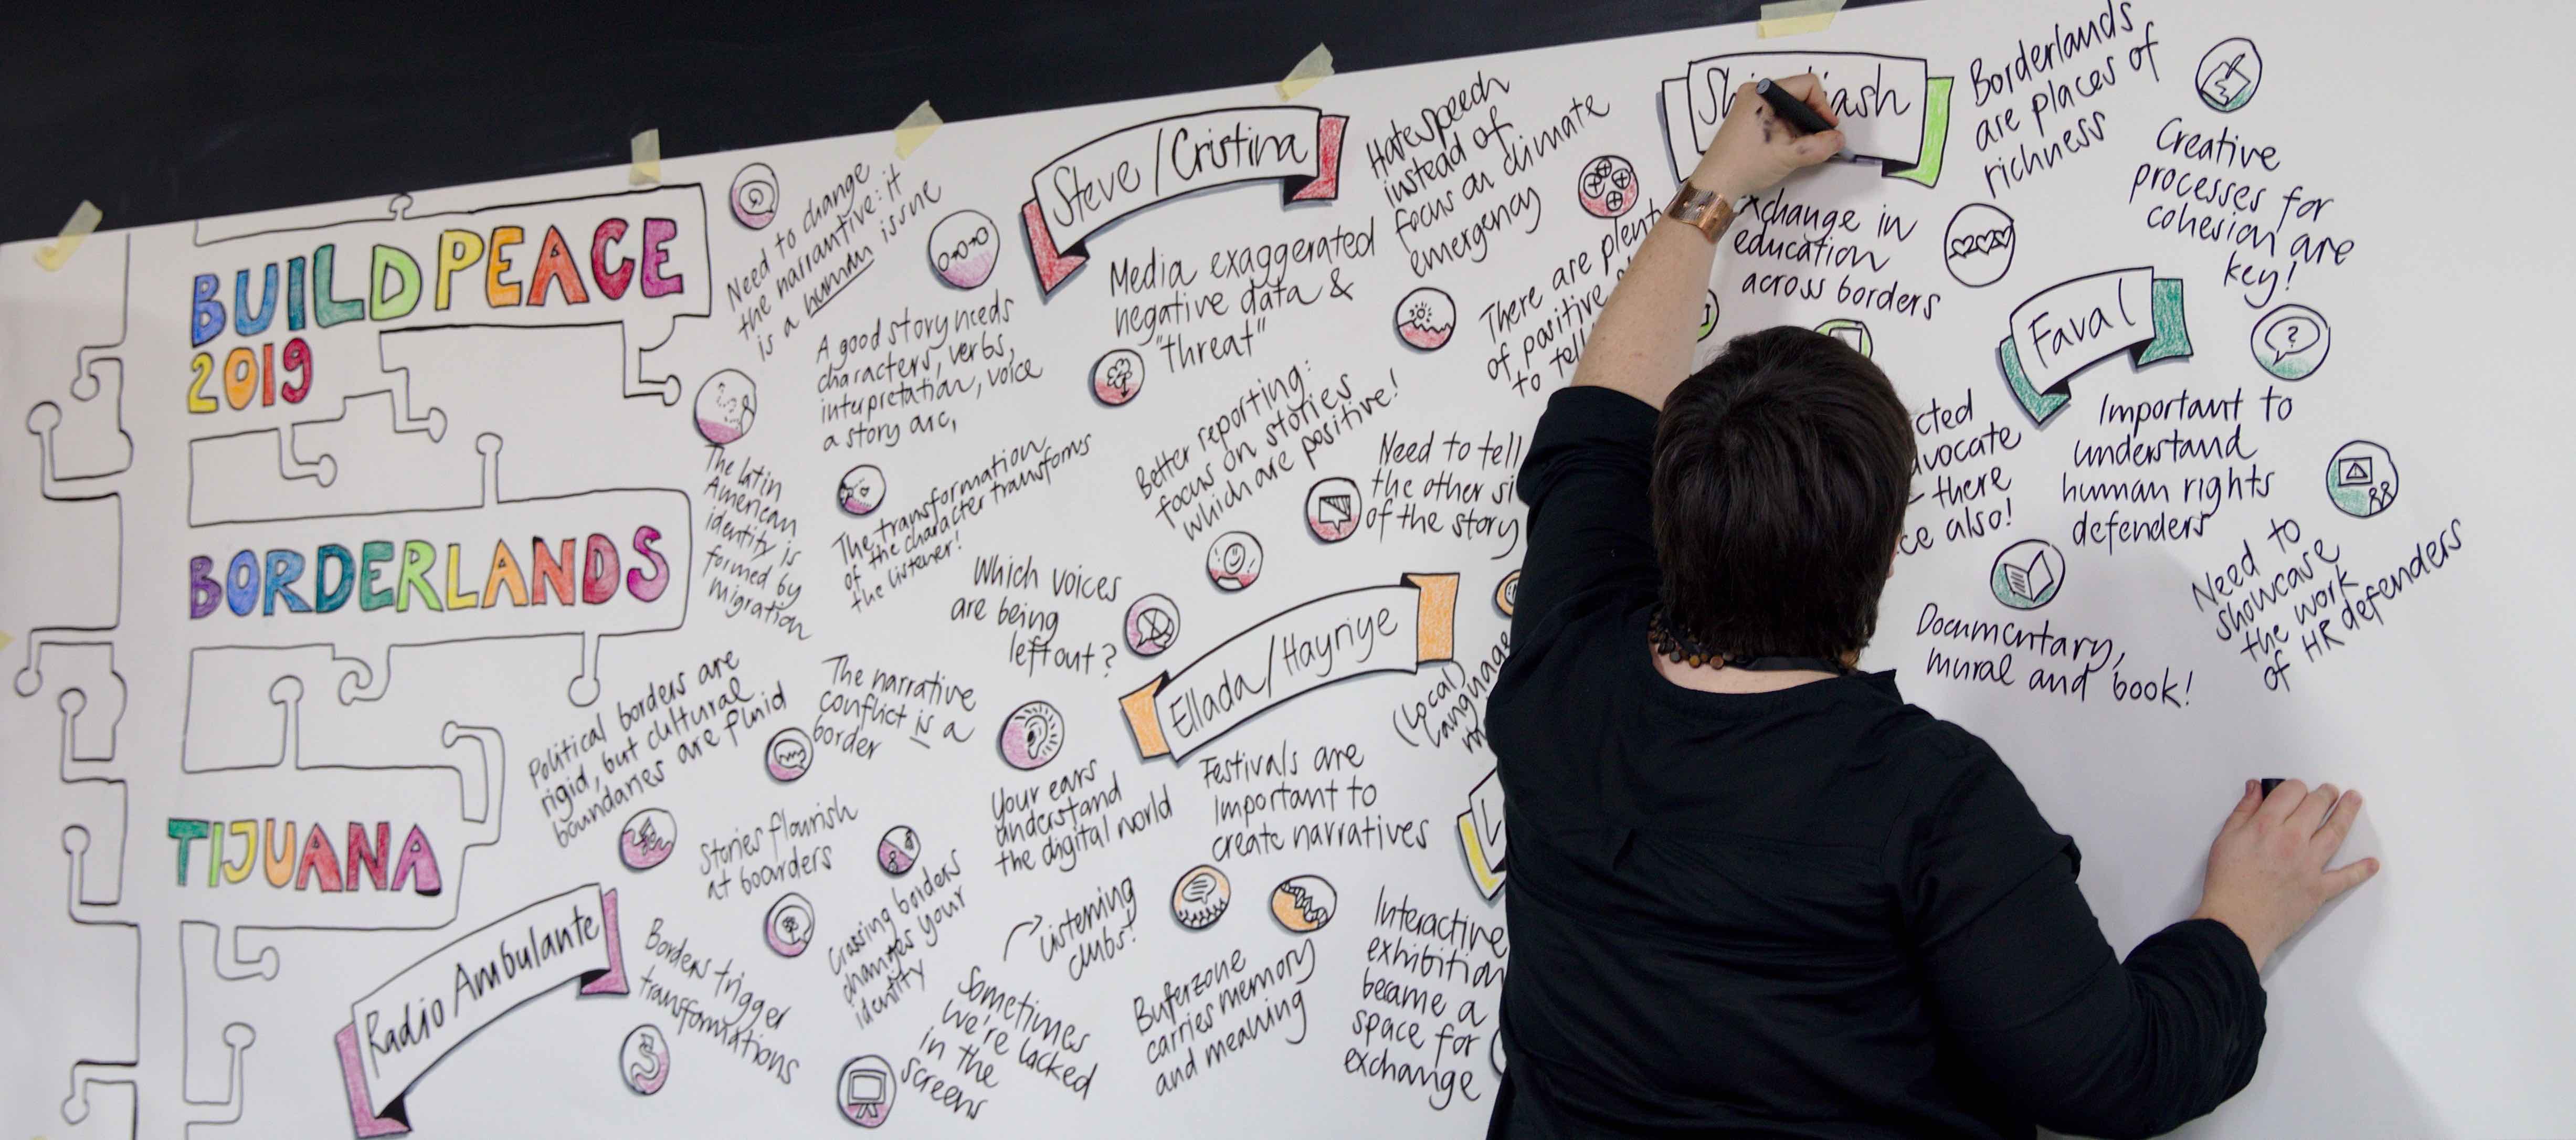 BUILD PEACE
2019
BORDERLANDS
TIJUANA
Radio Ambulante
Need to change
the narrantive: it
is a human issue
A good story needs
characters, verbs,
interpretation, voice
a story arc,
The latin
American
identity is
formed by
migration
The transformation
of the character transforms
the listener!
Which voices
are being
left out?
Political borders are
rigid, but cultural
boundaries are fluid
The narrative
conflict is a
border
Your ears
understand
the digital world
Stories flourish
at boarders
Crossing borders
changes your
identity
Borders trigger
transformations
Listening
clubs!
Sometimes
we're locked
in the
screens
Steve/Cristina
Media exaggerated
negative data &
"threat"
Hatespeech
instead of
focus on climate
emergency
There are
of positive
to tell
Better reporting:
focus on stories
which are positive!
Need to tell
the other
of the story
Ellada/Hayriye
Festivals are
Important to
create narratives
(Local)
Language
Buferzone
carries memory
and meaning
Interactive
exhibition
became a
space for
exchange
Borderlands
are places of
richness
Creative
processes for
cohesion are
key!
in
education
across borders
Faval
there
also!
Important to
understand
human rights
defenders
Documentary,
mural and book!
Need to
showcase
the work
of HR defenders